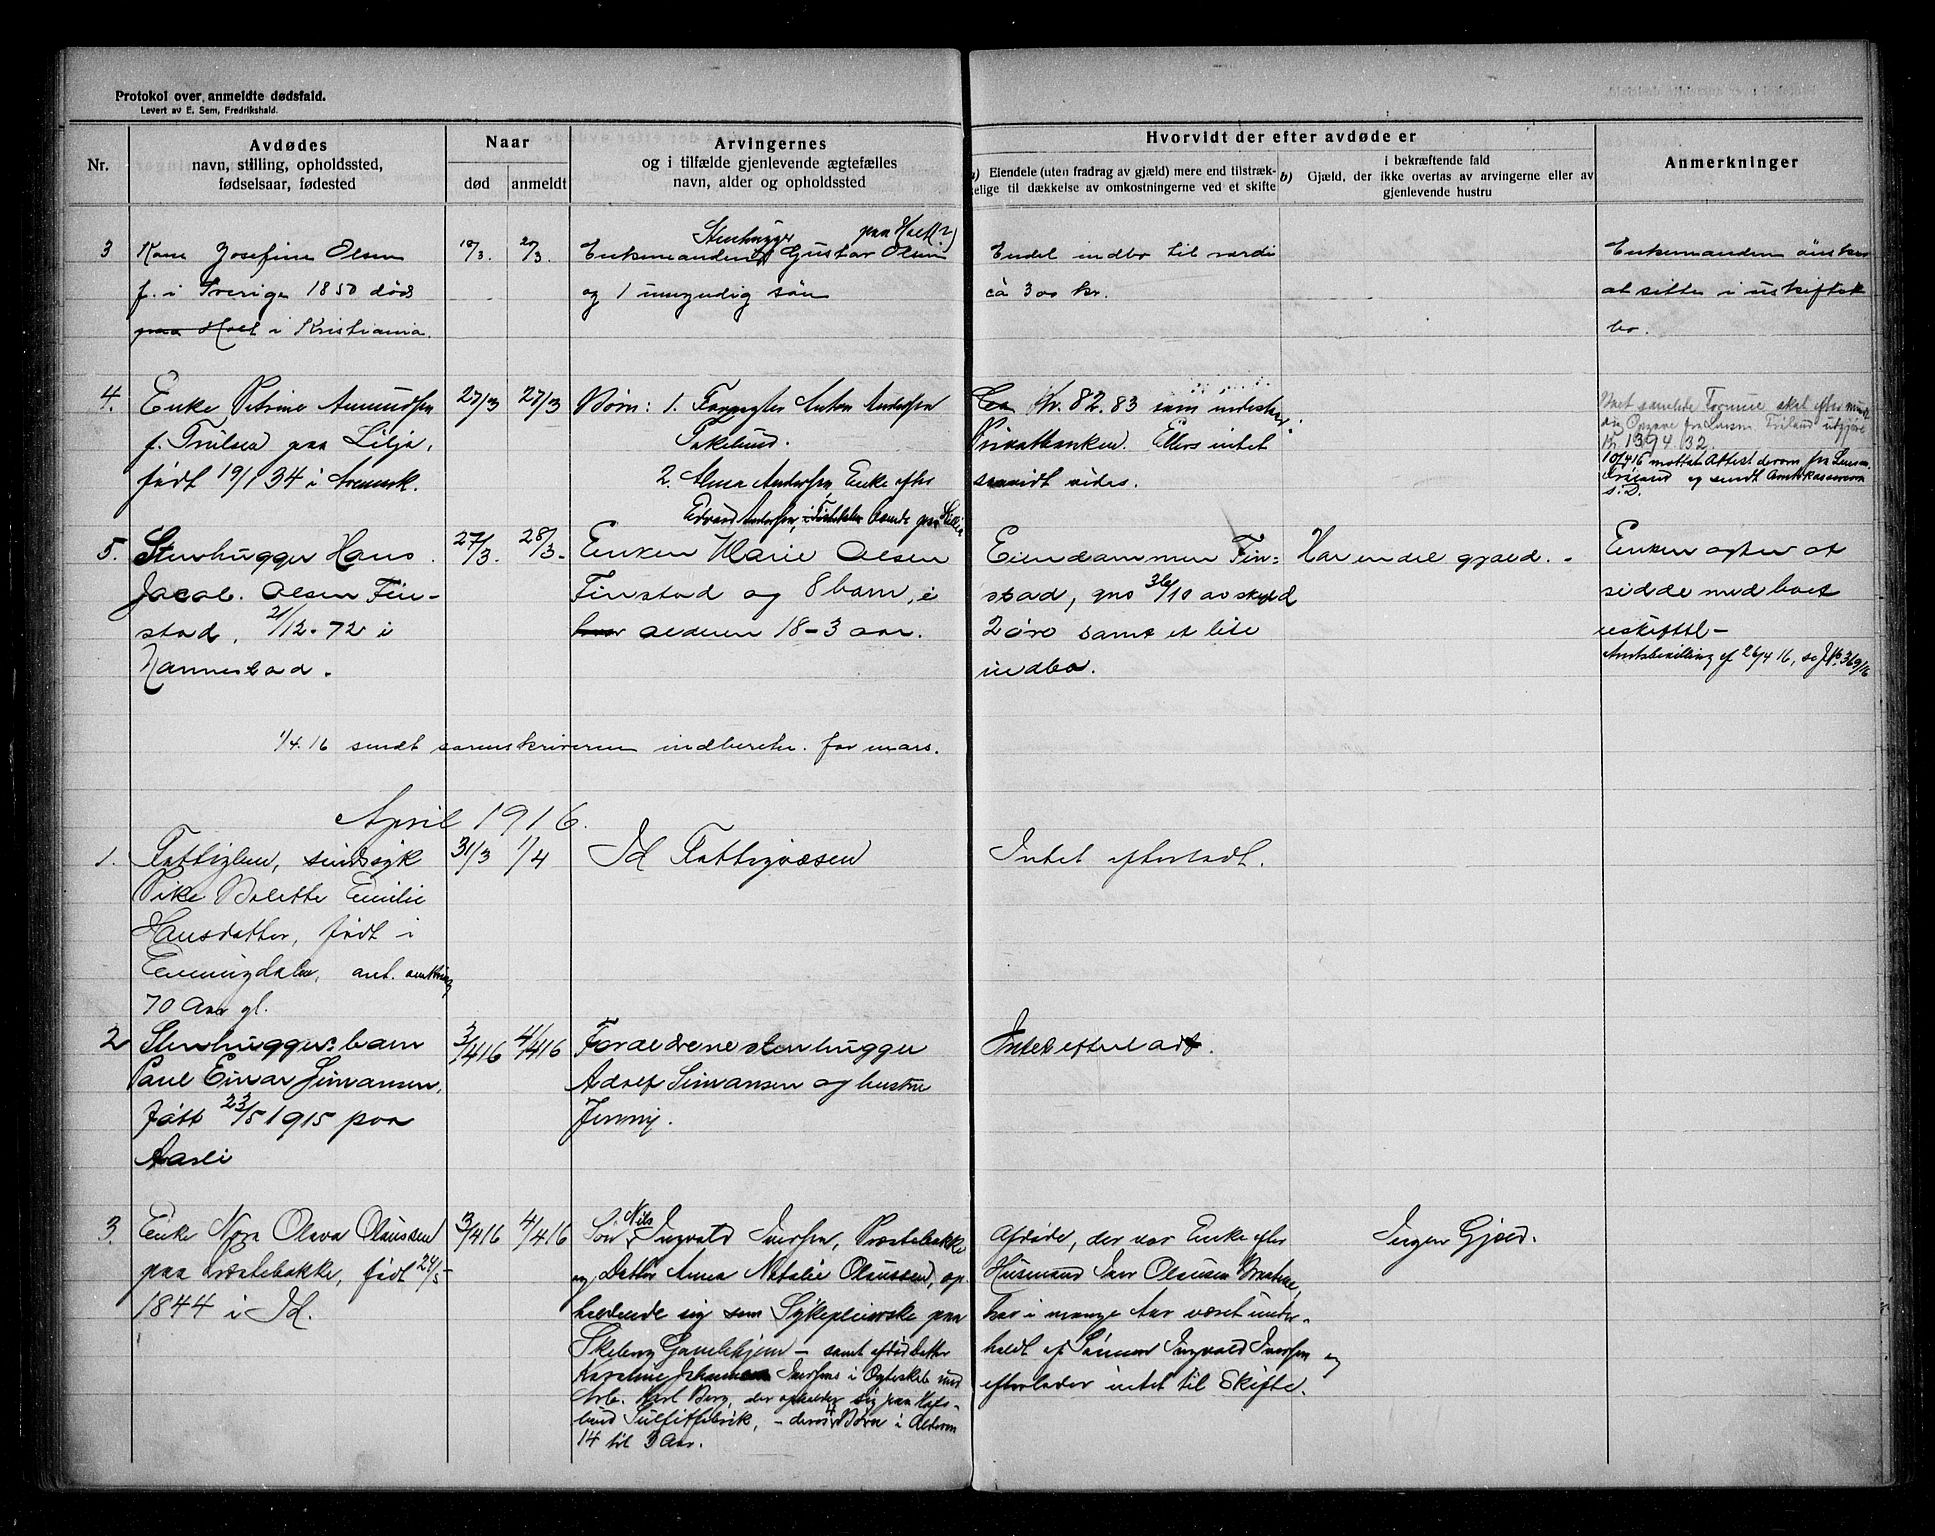 Protokol over anmeldte dødsfald.
Levert av E. Sem, Fredrikshald.
Nr.
Avdødes
navn, stilling, opholdssted,
fødselsaar, fødested
Naar
død
anmeldt
Arvingernes
og i tilfælde gjenlevende ægtefælles
navn, alder og opholdssted
Hvorvidt der efter avdøde er
a) Eiendele (uten fradrag av gjæld) mere end tilstræk-
kelige til dækkelse av omkostningerne ved et skifte
i bekræftende fald
b) Gjæld, der ikke overtas av arvingerne eller av
gjenlevende hustru
Anmerkninger
3
Kone Josefine Olsen
f. i Sverige 1850 død
paa Holt i Kristiania.
18/3.
27/3.
Stenhugger paa Holt?)
Enkemanden Gustav Olsen
og 1 umyndig søn
Endel indbo til værdi
ca 300 kr.
Enkemanden ønsker
at sitte i uskiftet
bo.
4.
Enke Petrine Amundsen
f. Trulsen paa Lilja,
født 19/1 34 i
27/3
27/3
Børn: 1. Anton Andersen
2. Andersen, Enke efter
Edvard Andersen,
Kr. 82.83 som indestaar i
Privatbanken. Ellers intet
saavidt vides.
samlede Formue skal efter
Opgave fra Lensm. utgjøre
Kr. 1394.32.
10/4 16 mottat Attest derom fra Lensm.
og sendt Amtskassereren
s. D.
5.
Stenhugger Hans
Jacob Olsen Fin-
stad, 21/12-72 i
Nannestad.
27/3.
28/3-
Enken Marie Olsen
Finstad og 8 barn, i
hvor alderen 18-3 aar.
Eiendommen Fin-
stad, gno 36/10 av skyld
2 øre samt et lite
indbo.
Har en del gjæld. -
Enken agter at
sidde med boet
uskiftet -
Amtsbevilling af 26/4 16, se J.No. 369/16
1/4.16 sendt sorenskriveren indberetn. for mars.
April 1916.
1.
Fattiglem, sindssyk
Pike Bolette Emilie
Hansdatter, født i
Enningdalen, ant. omkring
70 Aar gl.
31/3
1/4
Id Fattigvæsen
Intet efterladt.
2
Stenhugger barn
Paul Einar Simonsen,
født 23/5 1915 paa
Aasli
3/4 16
4/4 16
Forældrene stenhugger
Adolf Simonsen og hustru
Jenny.
Intet efterladt.
3.
Enke Nora Olava Olaussen
paa Præstebakke, født 24/5-
1844 i Id.
3/4 16
4/4 16
Søn, Nils Ingvald Iversen, Præstebakke
og Datter Anna Natalie Olaussen, op-
holdende sig som Sykepleierske paa
Skeberg Gamlehjem - samt afdød Datter
Karoline Iversens i Ægteskab med
Arb. Karl Berg, der opholder sig paa Hafs-
lund Sulfitfabrik, - deres 4 Børn i Alderen
14 til 3 Aar.
Afdøde, der var Enke efter
Husmand Iver Olausen
har i mange Aar været under-
holdt af Sønnen Ingvald Iversen og
efterlader intet til Skifte.
Ingen Gjæld.